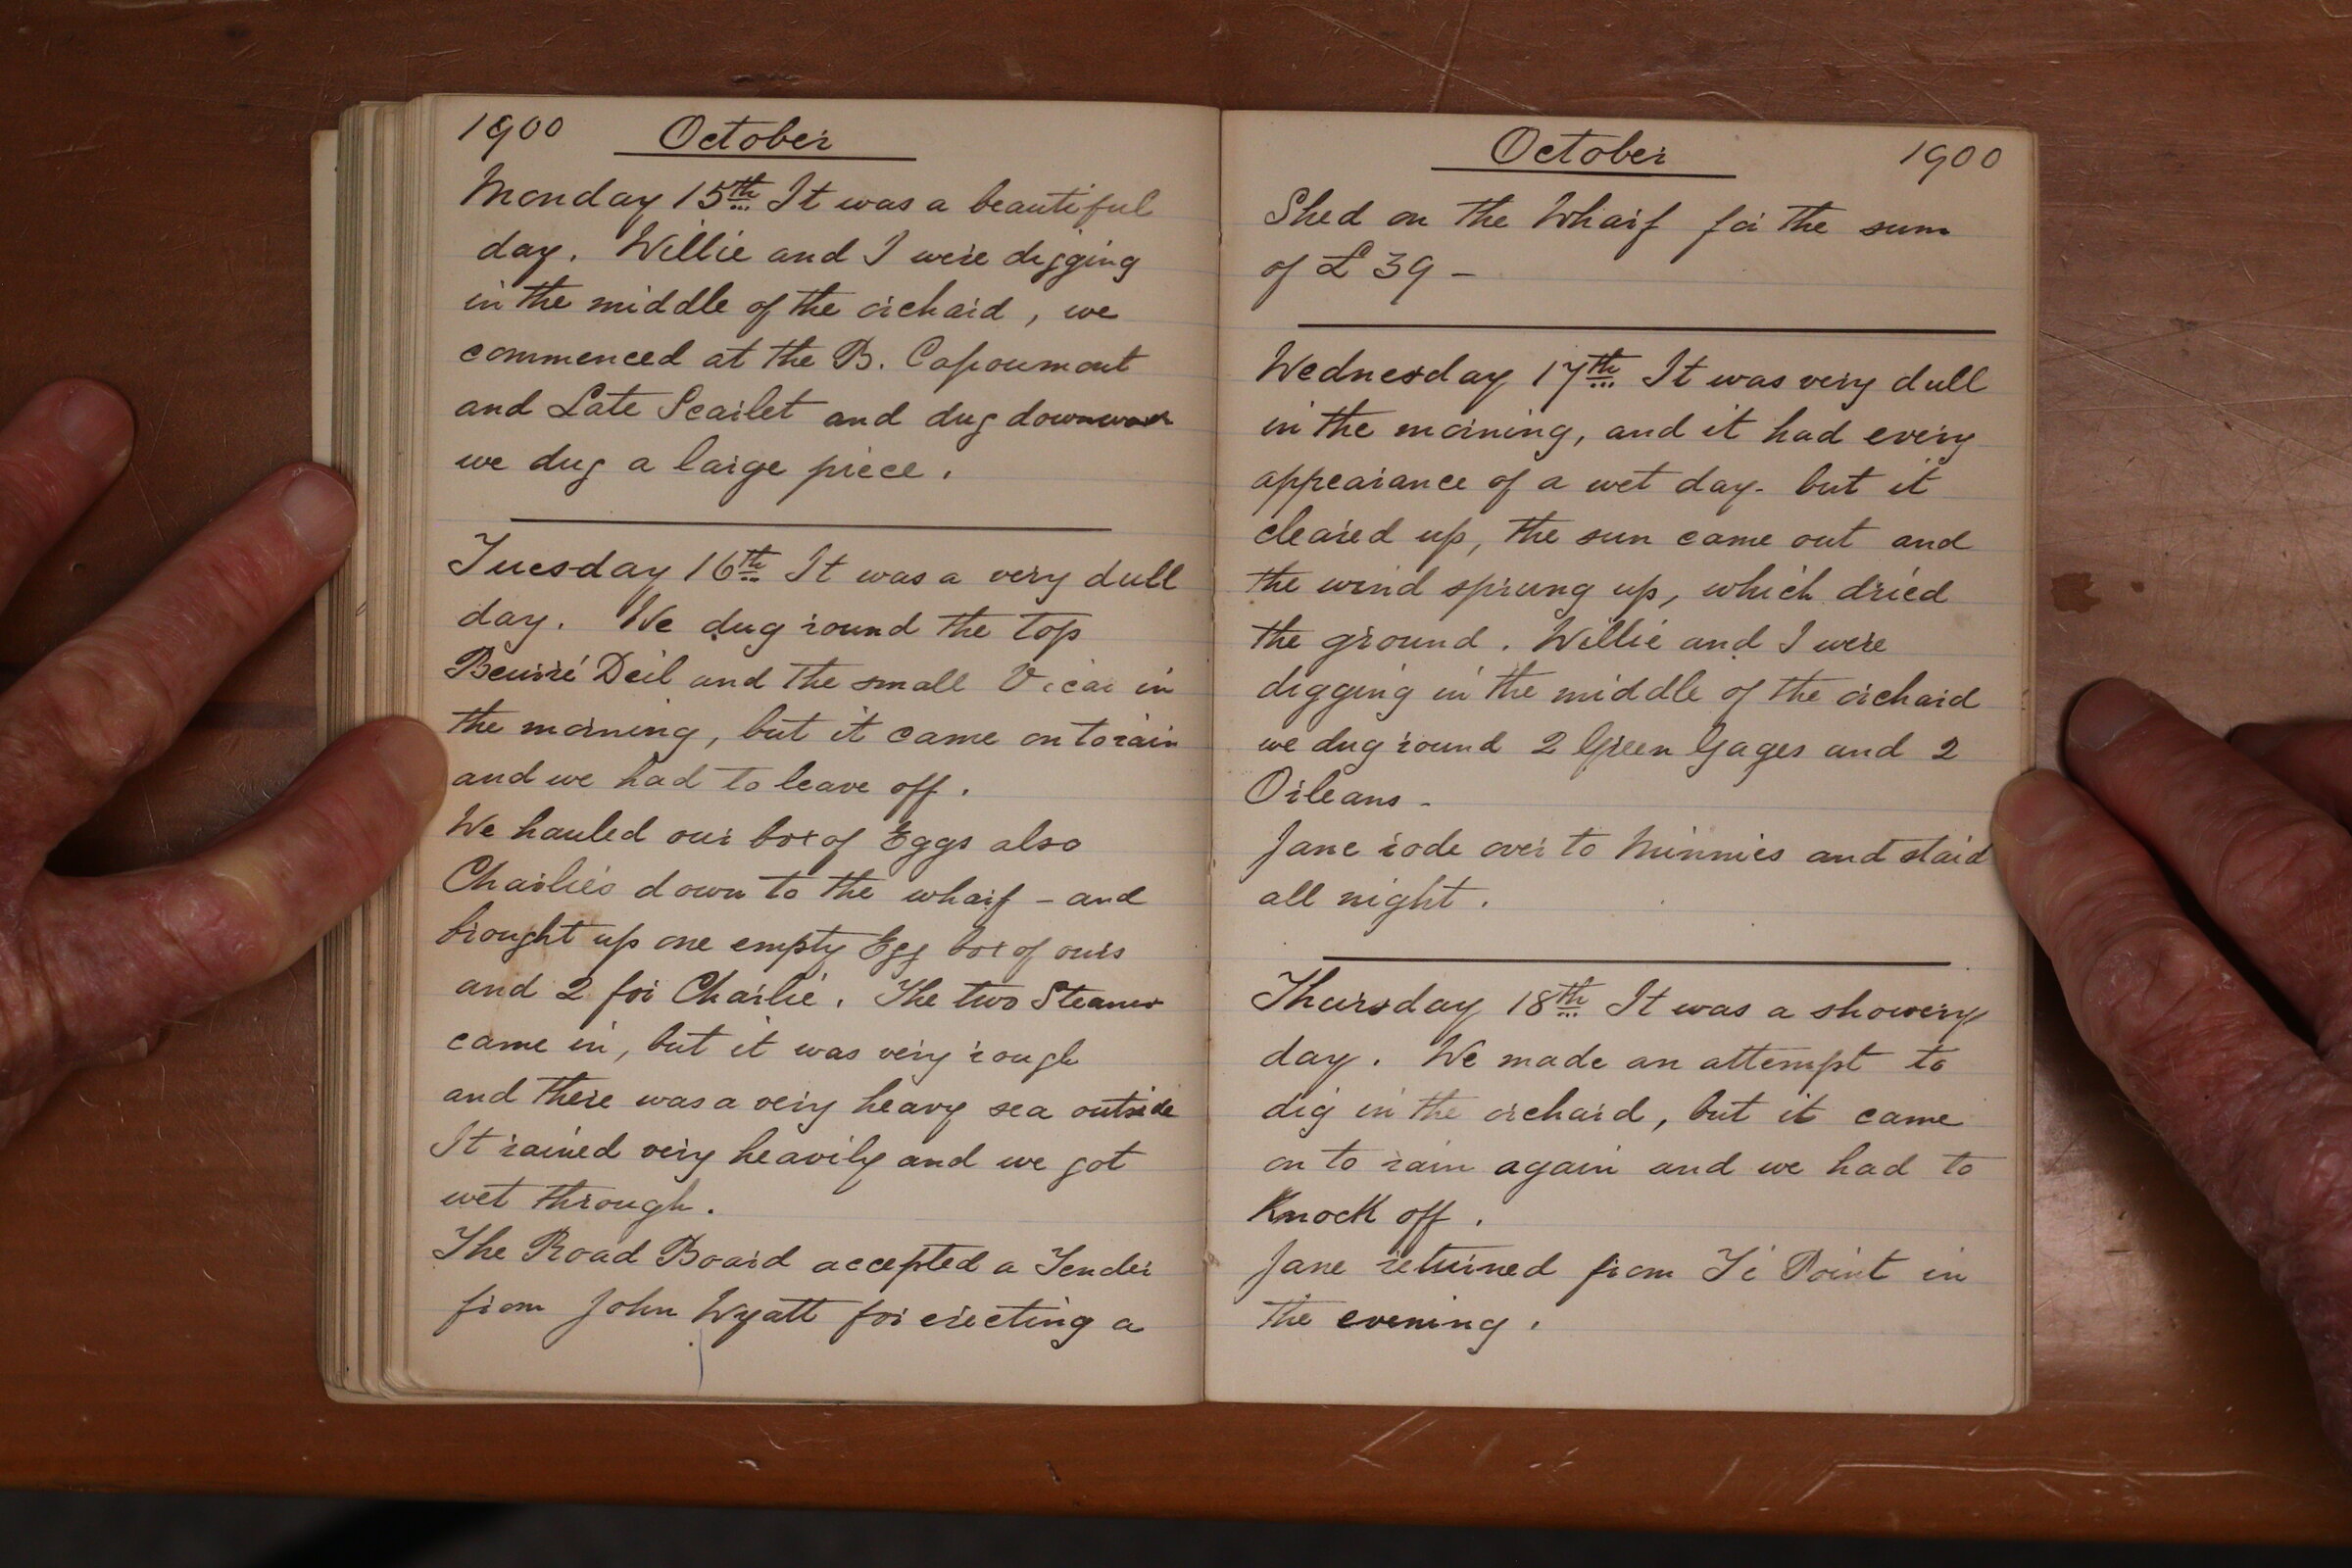 1900 October
Monday 15th It was a beautiful
day. Willie and I were digging
in the middle of the orchard, we
commenced at the B. Capoumont
and Late Scarlet and dug downward
we dug a large piece.
Tuesday 16th It was a very dull
day. We dug round the top
Beurré Deil and the small Vicar in
the morning, but it came on to rain
and we had to leave off.
We hauled our box of Eggs also
Charlie's down to the wharf - and
brought up one empty Egg box of ours
and 2 for Charlie. The two Steamers
came in, but it was very rough
and there was a very heavy sea outside
It rained very heavily and we got
wet through.
The Road Board accepted a Tender
from John Wyatt for erecting a
October 1900
Shed on the Wharf for the sum
of £39 -
Wednesday 17th It was very dull
in the morning, and it had every
appearance of a wet day. but it
cleared up, the sun came out and
the wind sprung up, which dried
the ground. Willie and I were
digging in the middle of the orchard
we dug round 2 Green Gages and 2
Orleans -
Jane rode over to Minnies and staid
all night.
Thursday 18th It was a showery
day. We made an attempt to
dig in the orchard, but it came
on to rain again and we had to
Knock off.
Jane returned from Ti Point in
the evening.